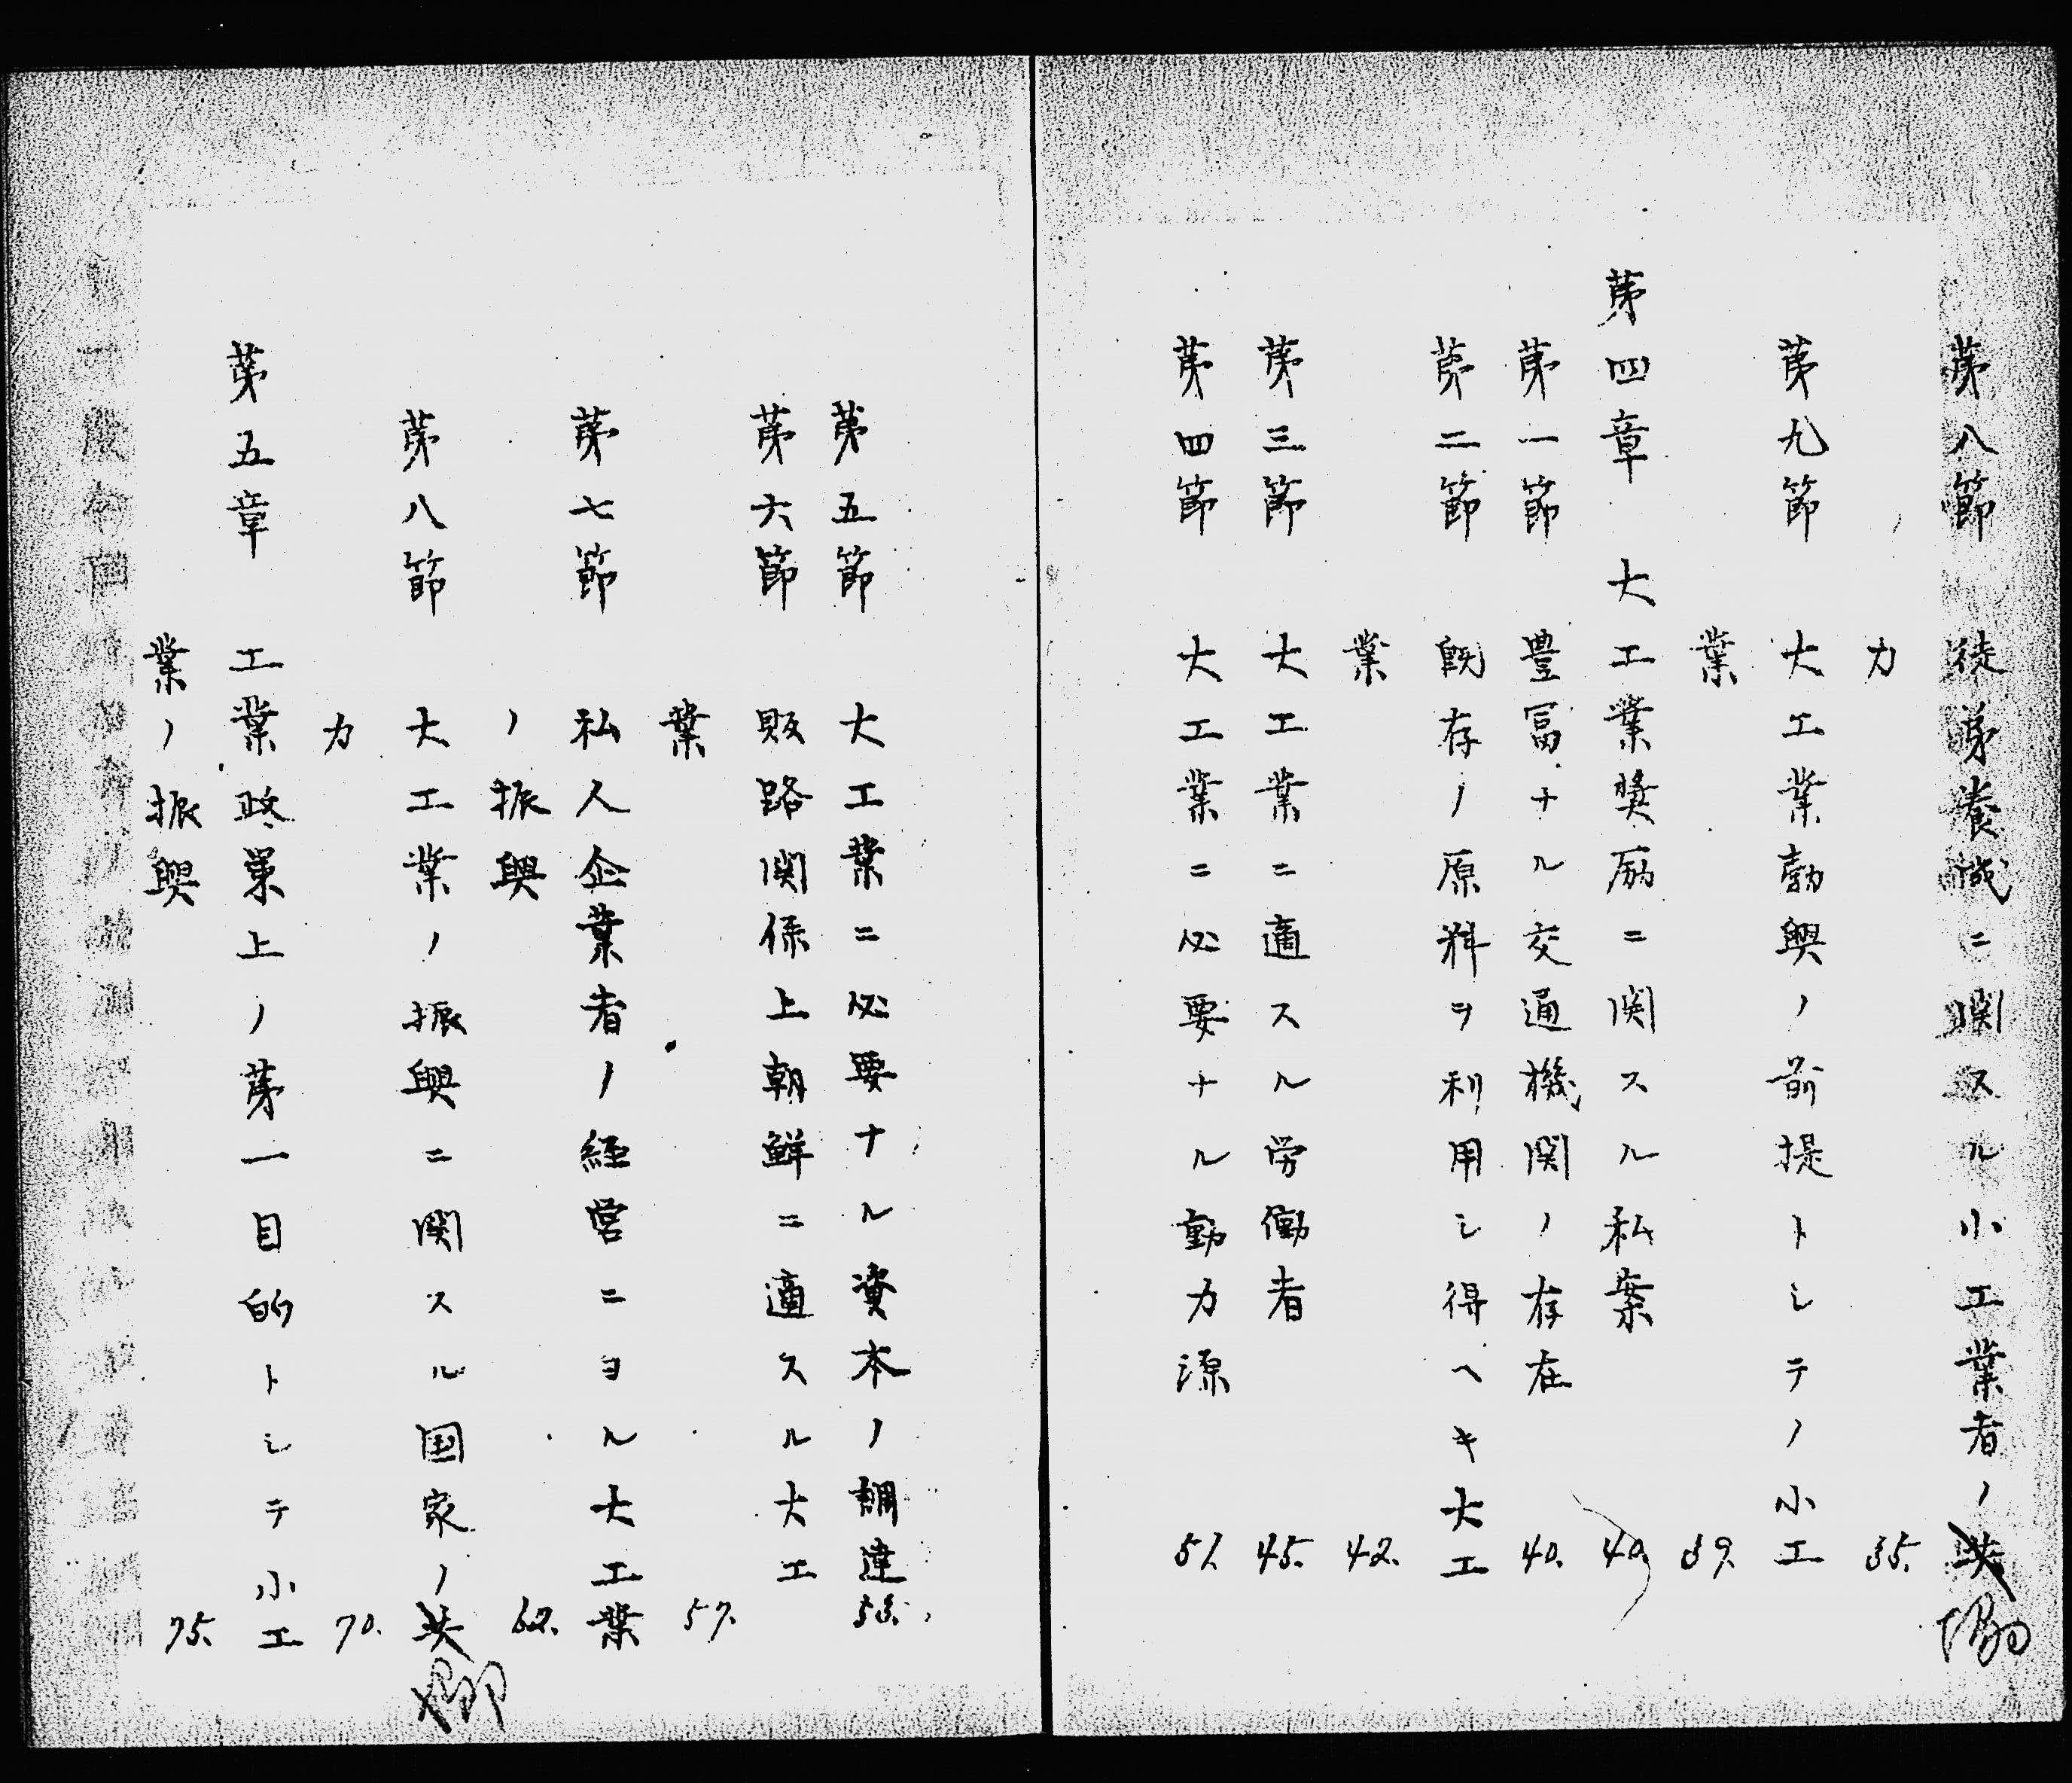 第八節　徒弟養成ニ関スル小工業者ノ協
力　35.
第九節　大工業勃興ノ前提トシテノ小工
業　39.
第四章　大工業奨励ニ関スル私案　40
第一節　豊富ナル交通機関ノ存在　40.
第二節　既存ノ原料ヲ利用シ得ヘキ大工
業　42.
第三節　大工業ニ適スル労働者　45.
第四節　大工業ニ必要ナル動力源　51.
第五節　大工業ニ必要ナル資本ノ調達　53.
第六節　販路関係上朝鮮ニ適スル大工
業　57.
第七節　私人企業者ノ経営ニヨル大工業
ノ振興　62.
第八節　大工業ノ振興ニ関スル国家ノ
力　70.
第五章　工業政策上ノ第一目的トシテ小工
業ノ振興　75.